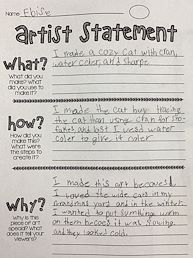 Name Eloise
Artist Statement
What?
What did you
make? What
did you use to
make it?
I made a cozy cat with cran,
water coler, and sharpe
how?
How did you
make this?
What were the
steps to
create it?
I made the cat buy tracing
the cat then using cran for
and last I uesd water
coler to give it culer
Why?
Why is the
piece of art
special? What
does it tell your
viewers?
I made this art becaues
I loved the wide cats in my
grandmas yard and in the winter
I wanted to put sumthing worm
on them becos it was snowing
and they looked cold.